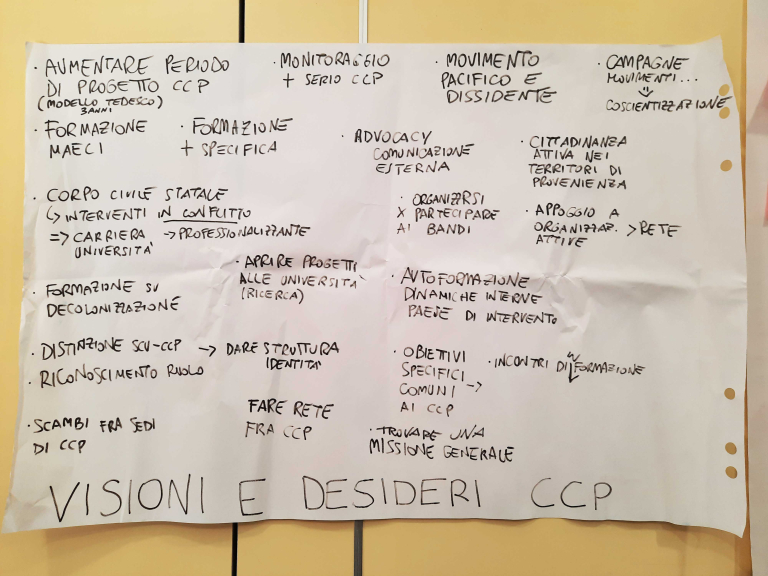 · AUMENTARE PERIODO
DI PROGETTO CCP
(MODELLO TEDESCO)
3 ANNI
· MONITORAGGIO
+ SERIO CCP
· MOVIMENTO
PACIFICO E
DISSIDENTE
· CAMPAGNE
MOVIMENTI...
COSCIENTIZZAZIONE
· FORMAZIONE
MAECI
· FORMAZIONE
+ SPECIFICA
· ADVOCACY
COMUNICAZIONE
ESTERNA
· CITTADINANZA
ATTIVA NEI
TERRITORI DI
PROVENIENZA
· CORPO CIVILE STATALE
↳ INTERVENTI IN CONFLITTO
=> CARRIERA → PROFESSIONALIZZANTE
UNIVERSITÀ
· ORGANIZZRSI
X PARTECIPARE
AI BANDI
· APPOGGIO A
ORGANIZZAZ. > RETE
ATTIVE
· FORMAZIONE SU
DECOLONIZZAZIONE
· APRIRE PROGETTI
ALLE UNIVERSITÀ
(RICERCA)
· AUTOFORMAZIONE
DINAMICHE INTERNE
PAESE DI INTERVENTO
· DISTINZIONE SCU-CCP → DARE STRUTTURA
IDENTITÀ
· RICONOSCIMENTO RUOLO
· OBIETTIVI
SPECIFICI
COMUNI →
AI CCP
· INCONTRI DI FORMAZIONE
· SCAMBI FRA SEDI
DI CCP
FARE RETE
FRA CCP
· TROVARE UNA
MISSIONE GENERALE
VISIONI E DESIDERI CCP